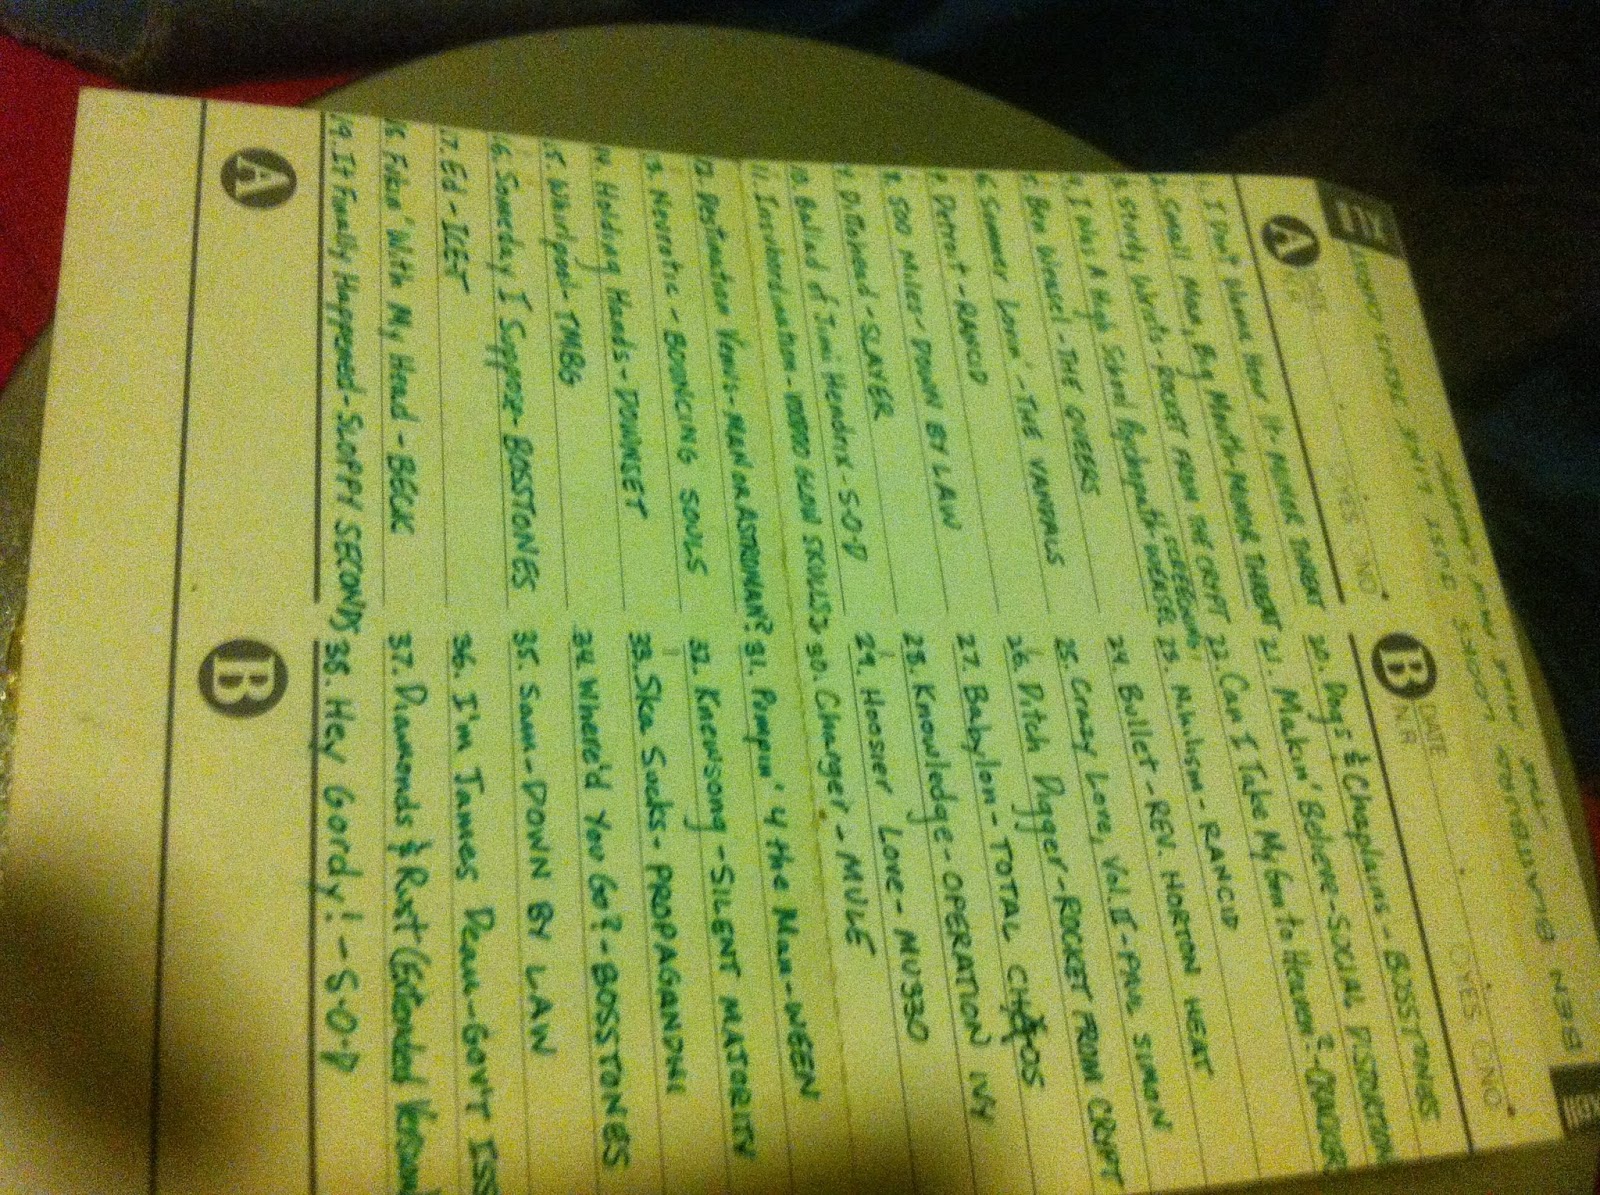 BEN
LOOKS JUST LIKE
A DATE NR YES NO
1. I Don't Wanna Hear It - MINOR THREAT
2. Small Man, Big Mouth - MINOR THREAT
3. Sturdy Wrists - ROCKET FROM THE CRYPT
4. I Was A High School Psychopath - SCREECHING WEASEL
5. Ben Weasel - THE QUEERS
6. Summer Lovin' - THE VANDALS
7. Detroit - RANCID
8. 500 Miles - DOWN BY LAW
9. Dittohead - SLAYER
10. Ballad of Jimi Hendrix - S.O.D
11. Insubordination - INTO GLORY SKULLS
12. Destination Venus - MAN OR ASTROMAN?
13. Neurotic - BOUNCING SOULS
14. Holding Hands - DOWNSET
15. Whirlpool - TMBG
16. Someday I Suppose - BOSSTONES
17. Ed - ICE T
18. Fukin' With My Head - BECK
19. It Finally Happened - SLOPPY SECONDS
A
B DATE NR YES NO
20. Dogs & Chaplains - BOSSTONES
21. Makin' Believe - SOCIAL DISTORTION
22. Can I Take My Gun to Heaven? -
23. Nihilism - RANCID
24. Bullet - REV. HORTON HEAT
25. Crazy Love, Vol. II - PAUL SIMON
26. Ditch Digger - ROCKET FROM CRYPT
27. Babylon - TOTAL CHAOS
28. Knowledge - OPERATION IVY
29. Hooser Love - MU330
30. Charger - MULE
31. Pimpin' 4 the Man - WEEN
32. Knewsong - SILENT MAJORITY
33. Ska Sucks - PROPAGANDHI
34. Where'd You Go? - BOSSTONES
35. Sam - DOWN BY LAW
36. I'm James Dean - GOV'T ISS
37. Diamonds & Rust (Extended Version
38. Hey Gordy! - S.O.D
B